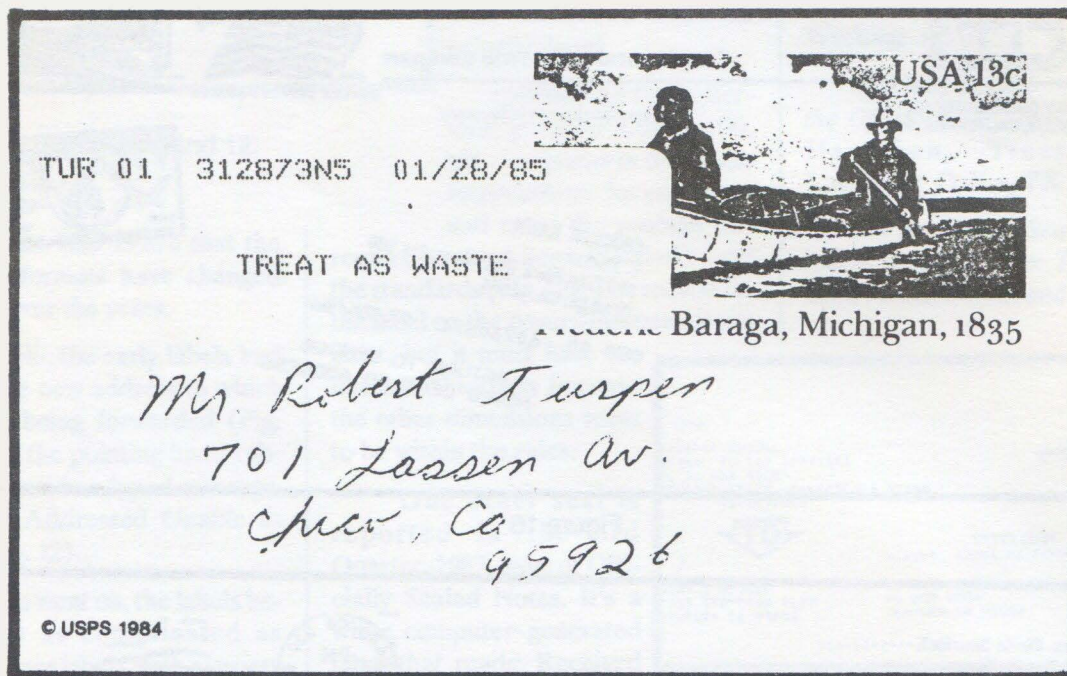 USA 13c
TUR 01 312873N5 01/28/85
TREAT AS WASTE
Baraga, Michigan, 1835
Mr Robert Turpen
701 Lassen Av.
Chico, Ca
95926
© USPS 1984